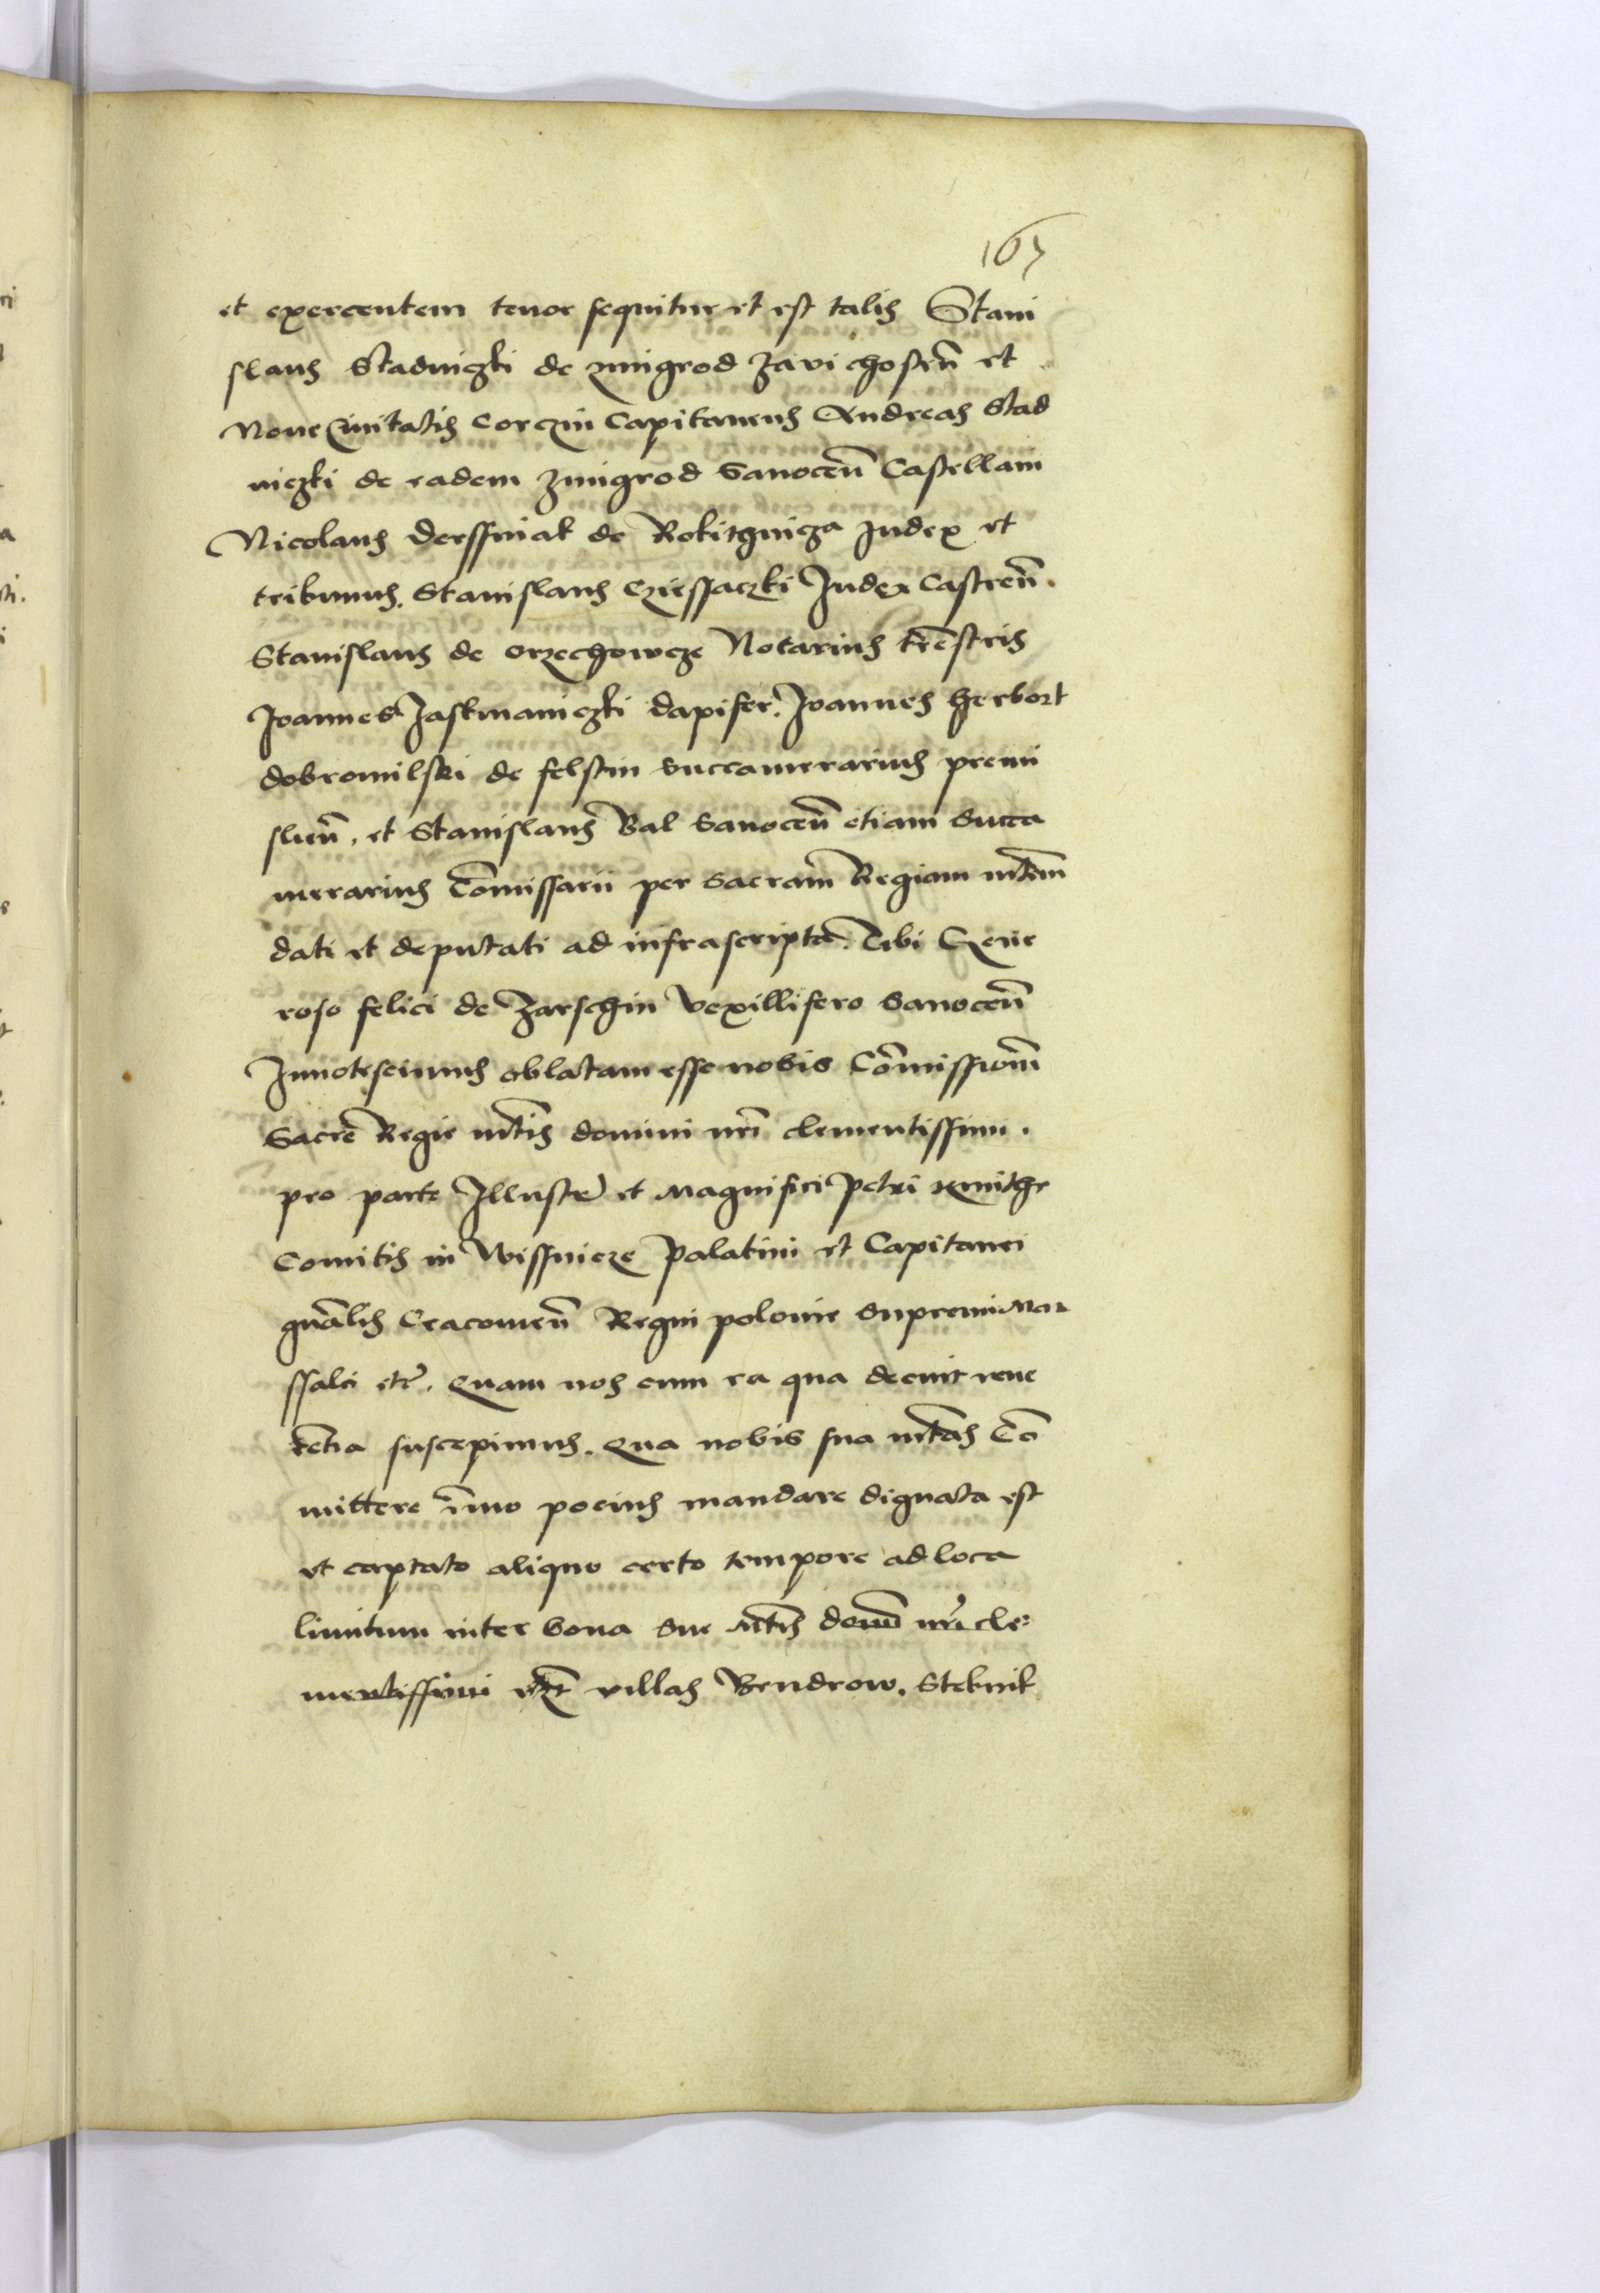 165
et exercentem tenor sequitur et est talis Stani
slaus Stadniczki de zmigrod Zavichosten̄ et
Noue Ciuitatis Corczin Capitaneus Andreas Stad
niczki de eadem Zmigrod Sanocen̄ Castellani
Nicolaus Derssniak de Rokithnicza Iudex et
tribunus. Stanislaus Cziessaczki Iudex Castren̄.
Stanislaus de orzechowcze Notarius tr̄estris
Joannes Jaskmaniczki dapifer. Joannes herbort
dobromilski de felstin Succamerarius premi
slien̄. et Stanislaus Bal Sanocen̄ etiam Succa
merarius Com̄issarii per Sacram Regiam mt̄em
dati et deputati ad infrascripta. Tibi Gene
roso felici de Zarschin Vexillifero Sanocen̄
Innotescimus oblatam esse nobis Com̄issionē
Sacre Regie mt̄is domini nr̄i clementissimi.
pro parte Illustr̄ et Magnifici Petri kmithe
Comitis in Wissnicze Palatini et Capitanei
gn̄alis Cracouien̄ Regni polonie Supremi Mar
ssalci etc̄. Quam nos cum ea qua decuit reue
ren̄tia suscepimus. Qua nobis sua mt̄as Com̄
mittere im̄o pocius mandare dignata est
vt captato aliquo certo tempore ad loca
limitum inter bona Sue mt̄is dom̄ nr̄i cle:
mentissimi villas Bendrow. Stebnik